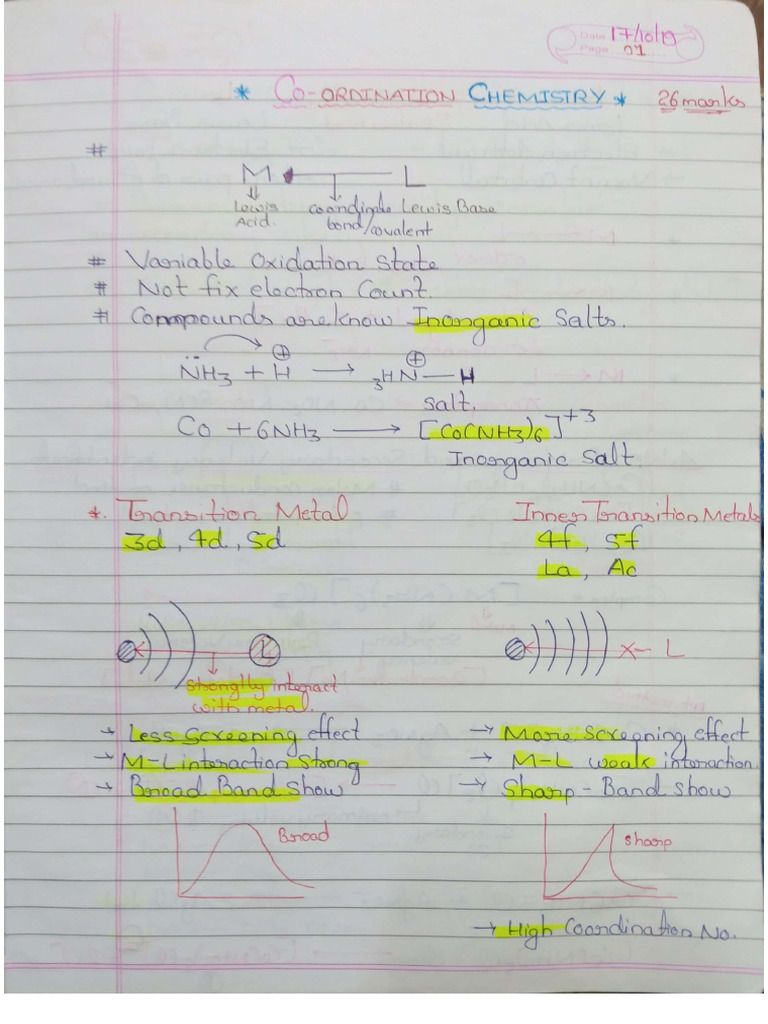 Date 17/10/19
Page 01
* CO-ORDINATION CHEMISTRY * 26 marks
#
M ← L
Lewis Acid.
coordinate bond/covalent
Lewis Base
# Variable Oxidation State
# Not fix electron Count.
# Compounds are know Inorganic Salts.
N̈H3 + H⊕ → 3HN⊕—H
salt.
Co + 6NH3 → [Co(NH3)6]+3
Inorganic Salt.
*. Transition Metal
3d, 4d, 5d
Inner Transition Metals
4f, 5f
La, Ac
L
strongly interact
with metal.
x— L
→ Less Screening effect
→ M-L interaction Strong
→ Broad Band Show
Broad
→ More screening effect
→ M-L weak interaction.
→ Sharp - Band show
sharp
→ High Coordination No.